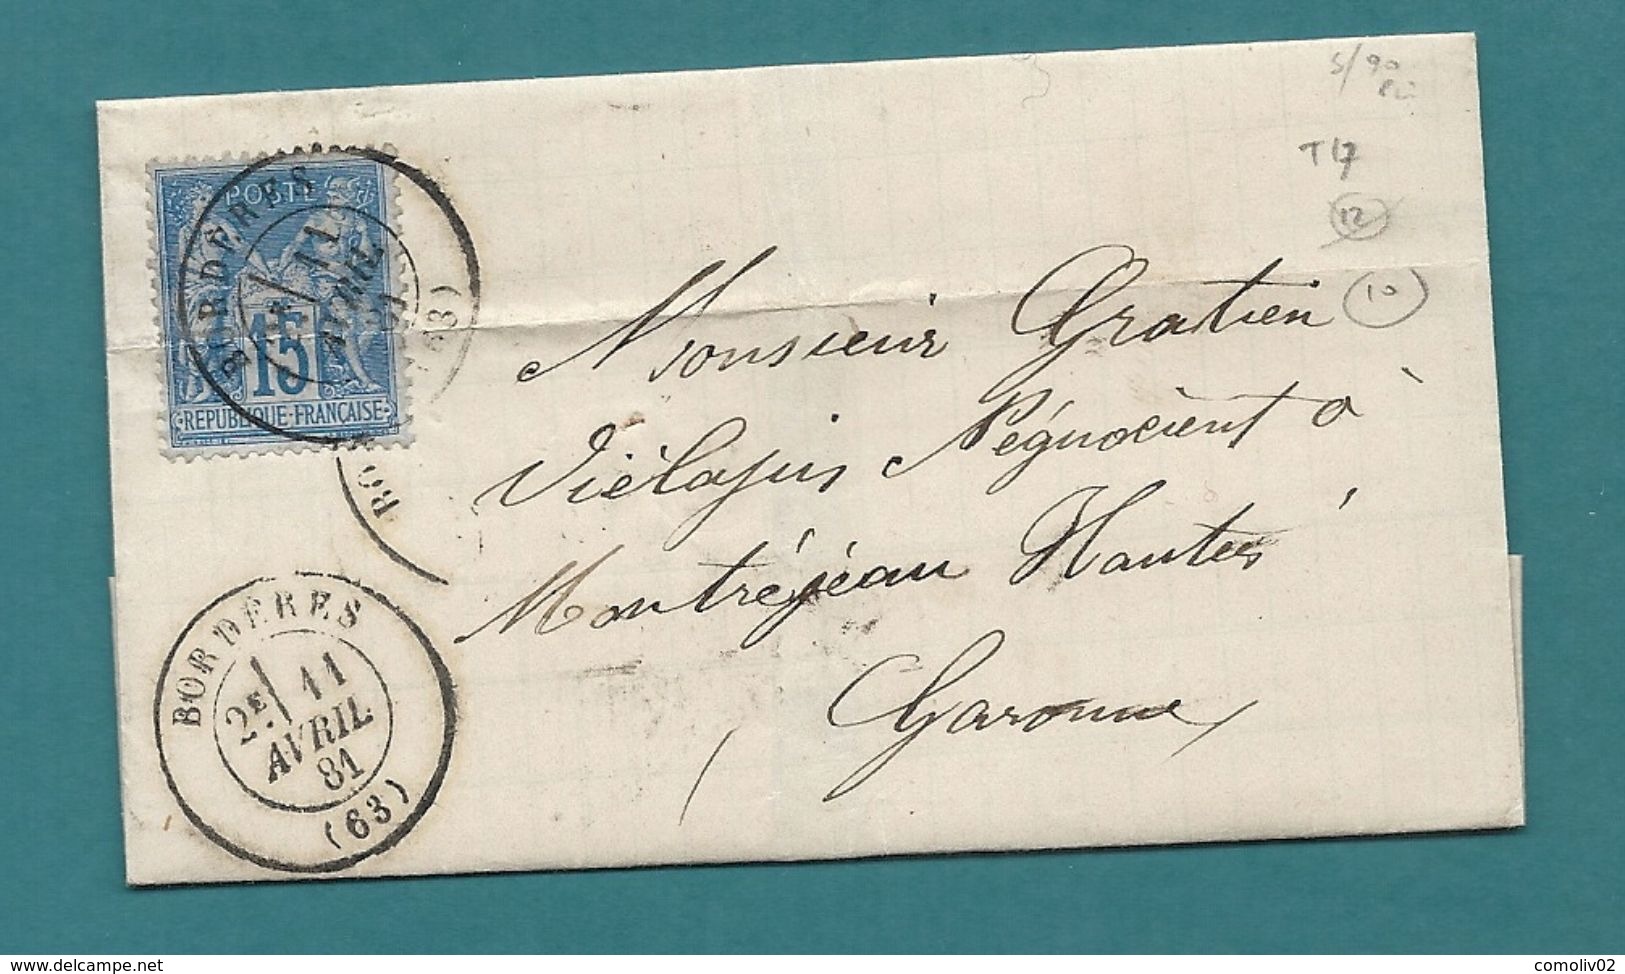 S/90
T17
12
10
POSTE
15
REPUBLIQUE-FRANÇAISE
BORDÈRES
11
AVRIL
81
(63)
BO
Monsieur Gratien
Viélajus Négocient à
Montréjeau Hautes
Garonne
BORDÈRES
2E 11
AVRIL
81
(63)
www.delcampe.net
comoliv02